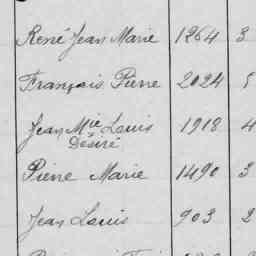 René Jean Marie 1264 3
François Pierre 2024 5
Jean Mie Louis 1918 4
Désiré
Pierre Marie 1490 3
Jean Louis 903 2